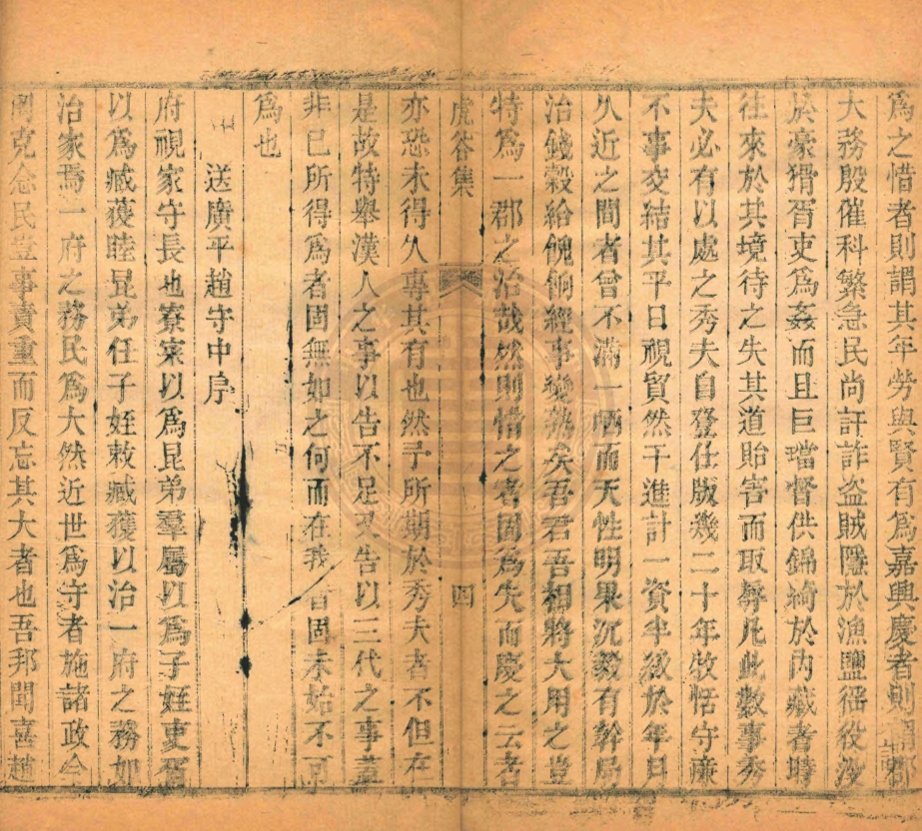 爲之惜者則謂其年勞與賢有爲嘉興慶者則謂郡
大務殷催科繁急民尚訐詐盗賊隱於漁鹽徭役没
於豪猾胥吏爲姦而且巨璫督供錦綺於内藏者時
往來於其境待之失其道貽害而取辱凡此數事秀
夫必有以處之秀夫自登仕版幾二十年牧恬守廉
不事交結其平日視貿然干進計一資半級於年月
久近之間者曾不滿一哂而天性明果沉毅有幹局
治錢穀給餽餉經事變熟矣吾君吾相將大用之豈
特爲一郡之治哉然則惜之者固爲失而慶之云者
虎谷集 四
亦恐未得久專其有也然予所期於秀夫者不但在
是故特舉漢人之事以告不足又告以三代之事蓋
非已所得爲者固無如之何而在我者固未始不可
爲也
送廣平趙守中序
府視家守長也寮寀以爲昆弟羣屬以爲子姪吏胥
以爲臧獲睦昆弟任子姪敕臧獲以治一府之務如
治家焉一府之務民爲大然近世爲守者施諸政令
罔克念民豈事責重而反忘其大者也吾邦聞喜趙